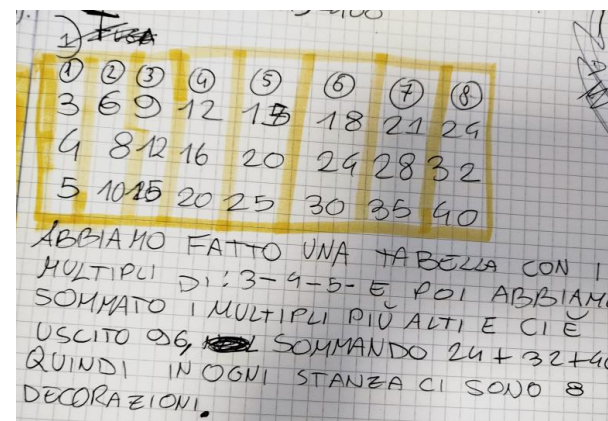 400
1)
① ② ③ ④ ⑤ ⑥ ⑦ ⑧
3 6 9 12 15 18 21 24
4 8 12 16 20 24 28 32
5 10 15 20 25 30 35 40
ABBIAMO FATTO UNA TABELLA CON I
MULTIPLI DI: 3-4-5- E POI ABBIAM
SOMMATO I MULTIPLI PIÙ ALTI E CI È
USCITO 96, SOMMANDO 24 + 32 + 40
QUINDI IN OGNI STANZA CI SONO 8
DECORAZIONI.